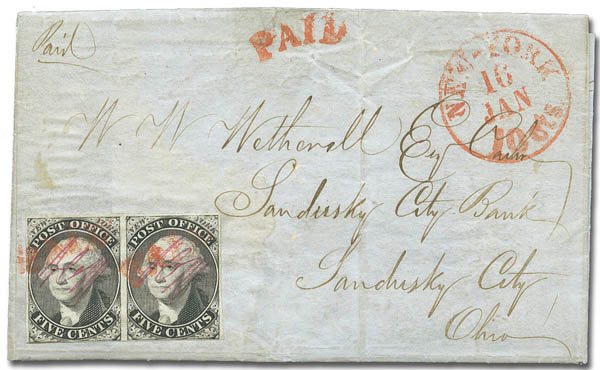 Paid
PAID
NEW-YORK
16
JAN
10 cts
W W Wetherall Esq
Sandusky City Bank
Sandusky City
Ohio
POST OFFICE
FIVE CENTS
POST OFFICE
FIVE CENTS